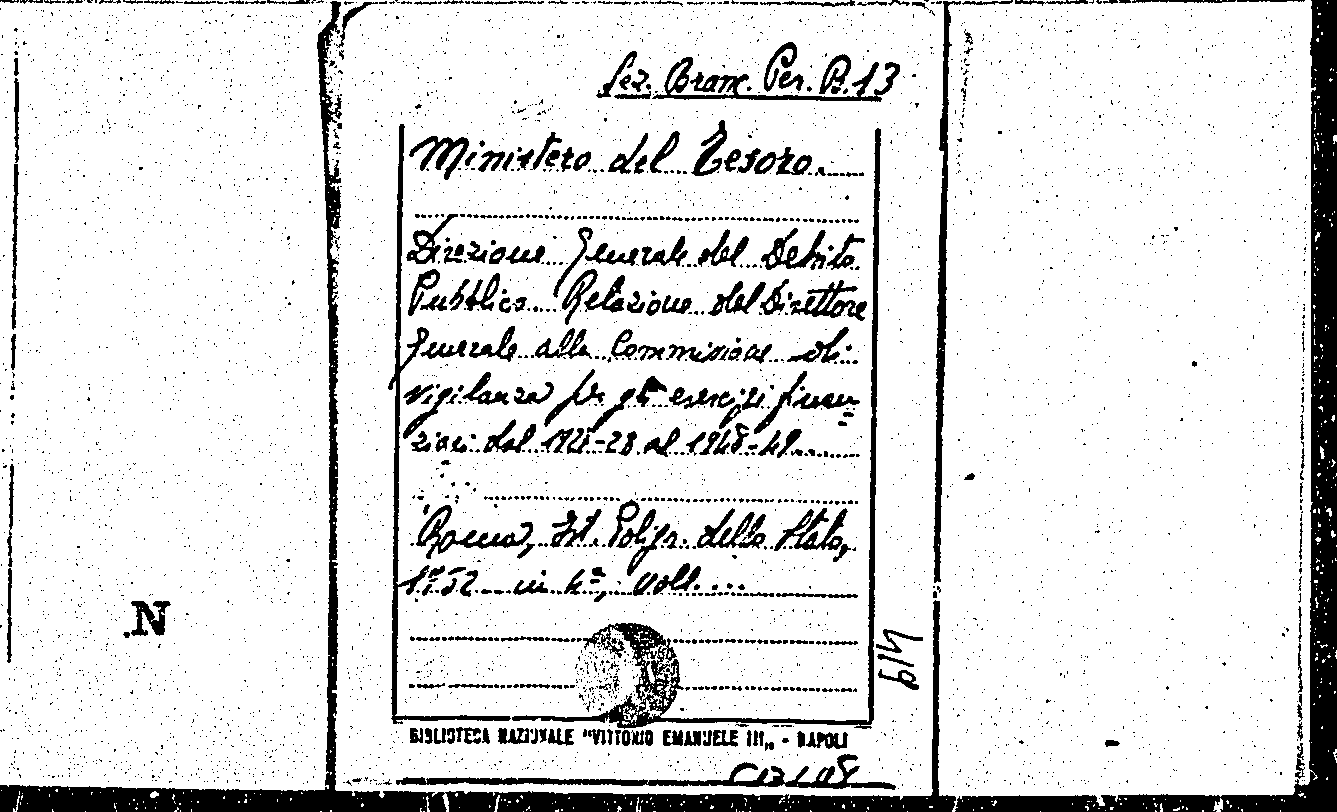 Sez. Branc. Per. B.13
Ministero del Tesoro.
Direzione Generale del Debito
Pubblico. Relazione del Direttore
Generale alla Commissione di
vigilanza per gli esercizi finan
ziari dal -28 al 1948-49
Roma, Ist. Poligr. dello Stato,
1952 in 4º, voll. ...
N
BIBLIOTECA NAZIONALE "VITTORIO EMANUELE III„ - NAPOLI